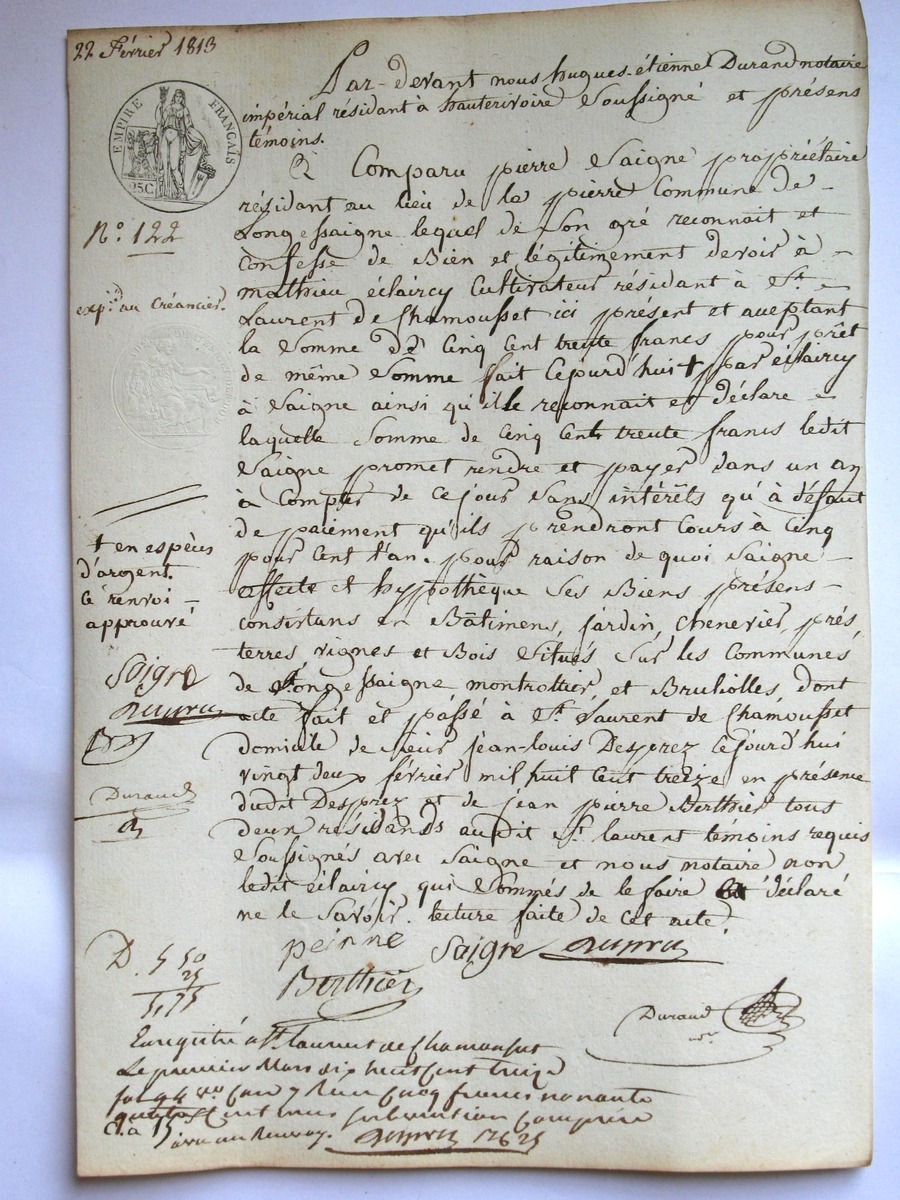 22 Février 1813
EMPIRE FRANÇAIS
25C
Par-devant nous hugues-étienne Durand notaire
impérial résidant à hauterivoire Soussigné et présens
témoins.
Comparu pierre Saigne propriétaire
résidant au lieu de la pierre Commune de
Longessaigne lequel de Son gré reconnait et
Confesse de Bien et légitimement devoir à
mathieu éclaircy Cultivateur résidant à St.
Laurent de Chamousset ici présent et aceptant
la Somme de Cinq Cent trente francs pour prêt
de même Somme fait Cejourd'hui + par éclaircy
à Saigne ainsi qu'il le reconnait et déclare
laquelle Somme de Cinq Cent trente francs ledit
Saigne promet rendre et payer dans un an
à Compter de ce jour Sans intérêts qu'à défaut
de paiement qu'ils prendront Cours à Cinq
pour Cent l'an. pour raison de quoi Saigne
affecte et hypothèque Ses Biens présens
consistans en Bâtimens, jardin, Chenevier, prés
terres, vignes et Bois Situés Sur les Communes
de Longessaigne montrottier, et Brullolles, dont
acte fait et passé à St. Laurent de Chamousset
domicile de Sieur jean-louis Desprez Cejourd'hui
vingt deux février mil huit Cent treize en présence
dudit Desprez et de jean pierre Berthier tous
deux résidands audit St. laurent témoins requis
Soussignés avec Saigne et nous notaire non
ledit éclaircy qui Sommés de le faire a déclaré
ne le Savoir. lecture faite de Cet acte.
No. 122
expn. au Créancier.
+ en espèces
d'argent.
Ce renvoi
approuvé
Saigne
Durand
peirre Saigne
Berthier
Durand
D. 5 50
25
5,75
Enregistré a St. laurent de Chamousset
Le premier Mars dix huit cent treize
fol 94 vo. Case 7 Reçu Cinq francs nonante
subvension Comprise